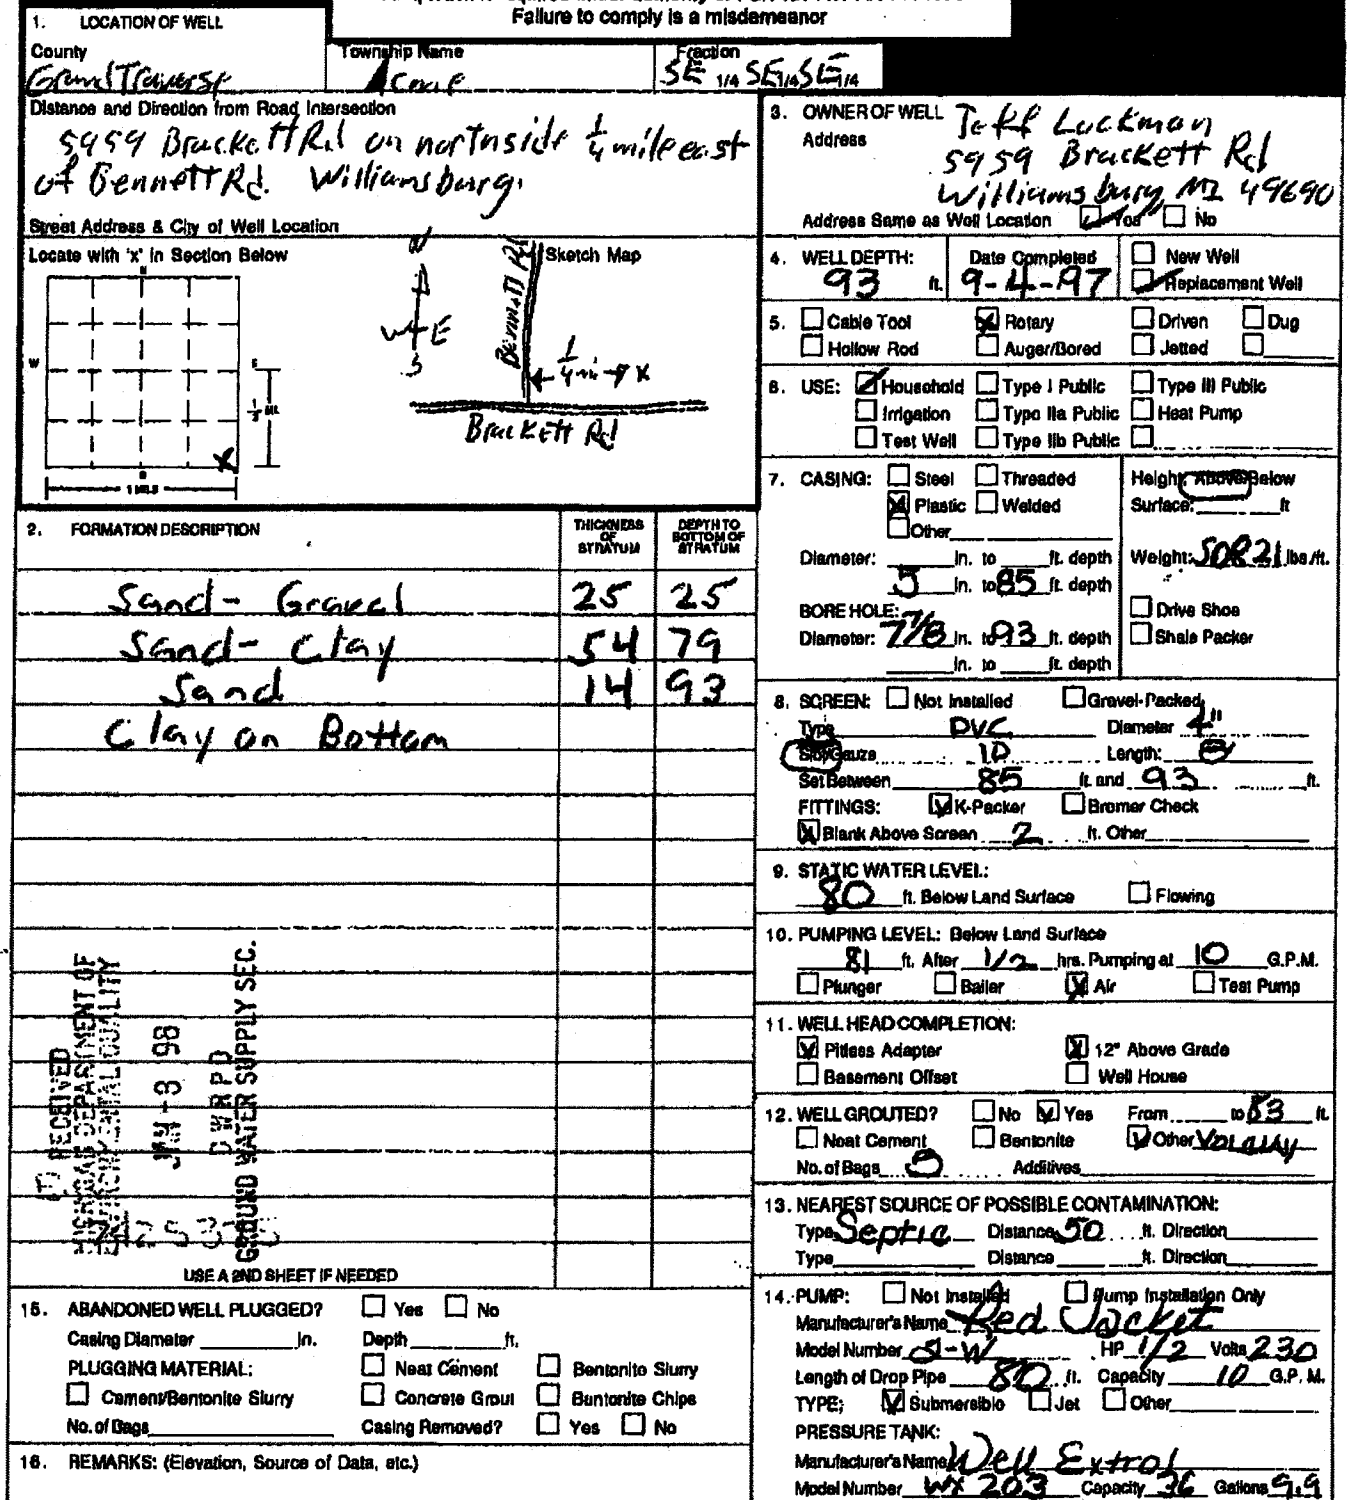 Failure to comply is a misdemeanor
1. LOCATION OF WELL
County Township Name Fraction
Grand Traverse Acme SE 1/4 SE 1/4 SE 1/4
Distance and Direction from Road Intersection
5959 Brackett Rd on northside 1/4 mile east
of Bennett Rd. Williamsburg.
Street Address & City of Well Location
Locate with 'x' in Section Below Sketch Map
N
W E
S
Bennett Rd
1/4 mi X
Brackett Rd
N
W E
1/2 MI.
X
S
1 MILE
2. FORMATION DESCRIPTION THICKNESS OF STRATUM DEPTH TO BOTTOM OF STRATUM
Sand- Gravel 25 25
Sand- Clay 54 79
Sand 14 93
Clay on Bottom
RECEIVED
MICHIGAN DEPARTMENT OF
ENVIRONMENTAL QUALITY
JAN -9 98
DWRPD
GROUND WATER SUPPLY SEC.
USE A 2ND SHEET IF NEEDED
15. ABANDONED WELL PLUGGED? Yes No
Casing Diameter in. Depth ft.
PLUGGING MATERIAL: Neat Cement Bentonite Slurry
Cement/Bentonite Slurry Concrete Grout Bentonite Chips
No. of Bags Casing Removed? Yes No
16. REMARKS: (Elevation, Source of Data, etc.)
3. OWNER OF WELL Jeff Lockman
Address 5959 Brackett Rd
Williamsburg MI 49690
Address Same as Well Location Yes No
4. WELL DEPTH: Date Completed New Well
93 ft. 9-4-97 Replacement Well
5. Cable Tool Rotary Driven Dug
Hollow Rod Auger/Bored Jetted
6. USE: Household Type I Public Type III Public
Irrigation Type IIa Public Heat Pump
Test Well Type IIb Public
7. CASING: Steel Threaded Height: Above/Below
Plastic Welded Surface: ft
Other
Diameter: in. to ft. depth Weight: SDR21 lbs/ft.
5 in. to 85 ft. depth
BORE HOLE: Drive Shoe
Diameter: 7 7/8 in. to 93 ft. depth Shale Packer
in. to ft. depth
8. SCREEN: Not Installed Gravel-Packed
Type PVC Diameter 4"
Slot/Gauze 10 Length: 8
Set Between 85 ft. and 93 ft.
FITTINGS: K-Packer Bremer Check
Blank Above Screen 2 ft. Other
9. STATIC WATER LEVEL:
80 ft. Below Land Surface Flowing
10. PUMPING LEVEL: Below Land Surface
81 ft. After 1/2 hrs. Pumping at 10 G.P.M.
Plunger Bailer Air Test Pump
11. WELL HEAD COMPLETION:
Pitless Adapter 12" Above Grade
Basement Offset Well House
12. WELL GROUTED? No Yes From to 83 ft.
Neat Cement Bentonite Other Volclay
No. of Bags Additives
13. NEAREST SOURCE OF POSSIBLE CONTAMINATION:
Type Septic Distance 50 ft. Direction
Type Distance ft. Direction
14. PUMP: Not Installed Pump Installation Only
Manufacturer's Name Red Jacket
Model Number HP 1/2 Volts 230
Length of Drop Pipe 80 ft. Capacity 10 G.P.M.
TYPE: Submersible Jet Other
PRESSURE TANK:
Manufacturer's Name Well Extrol
Model Number WX 203 Capacity 36 Gallons 9.9